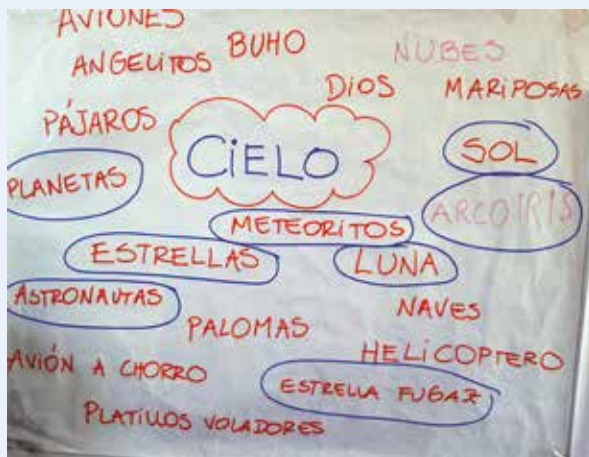 AVIONES
ANGELITOS
BUHO
NUBES
DIOS
MARIPOSAS
PÁJAROS
CIELO
SOL
PLANETAS
ARCOIRIS
METEORITOS
ESTRELLAS
LUNA
ASTRONAUTAS
NAVES
PALOMAS
HELICOPTERO
AVIÓN A CHORRO
ESTRELLA FUGAZ
PLATILLOS VOLADORES